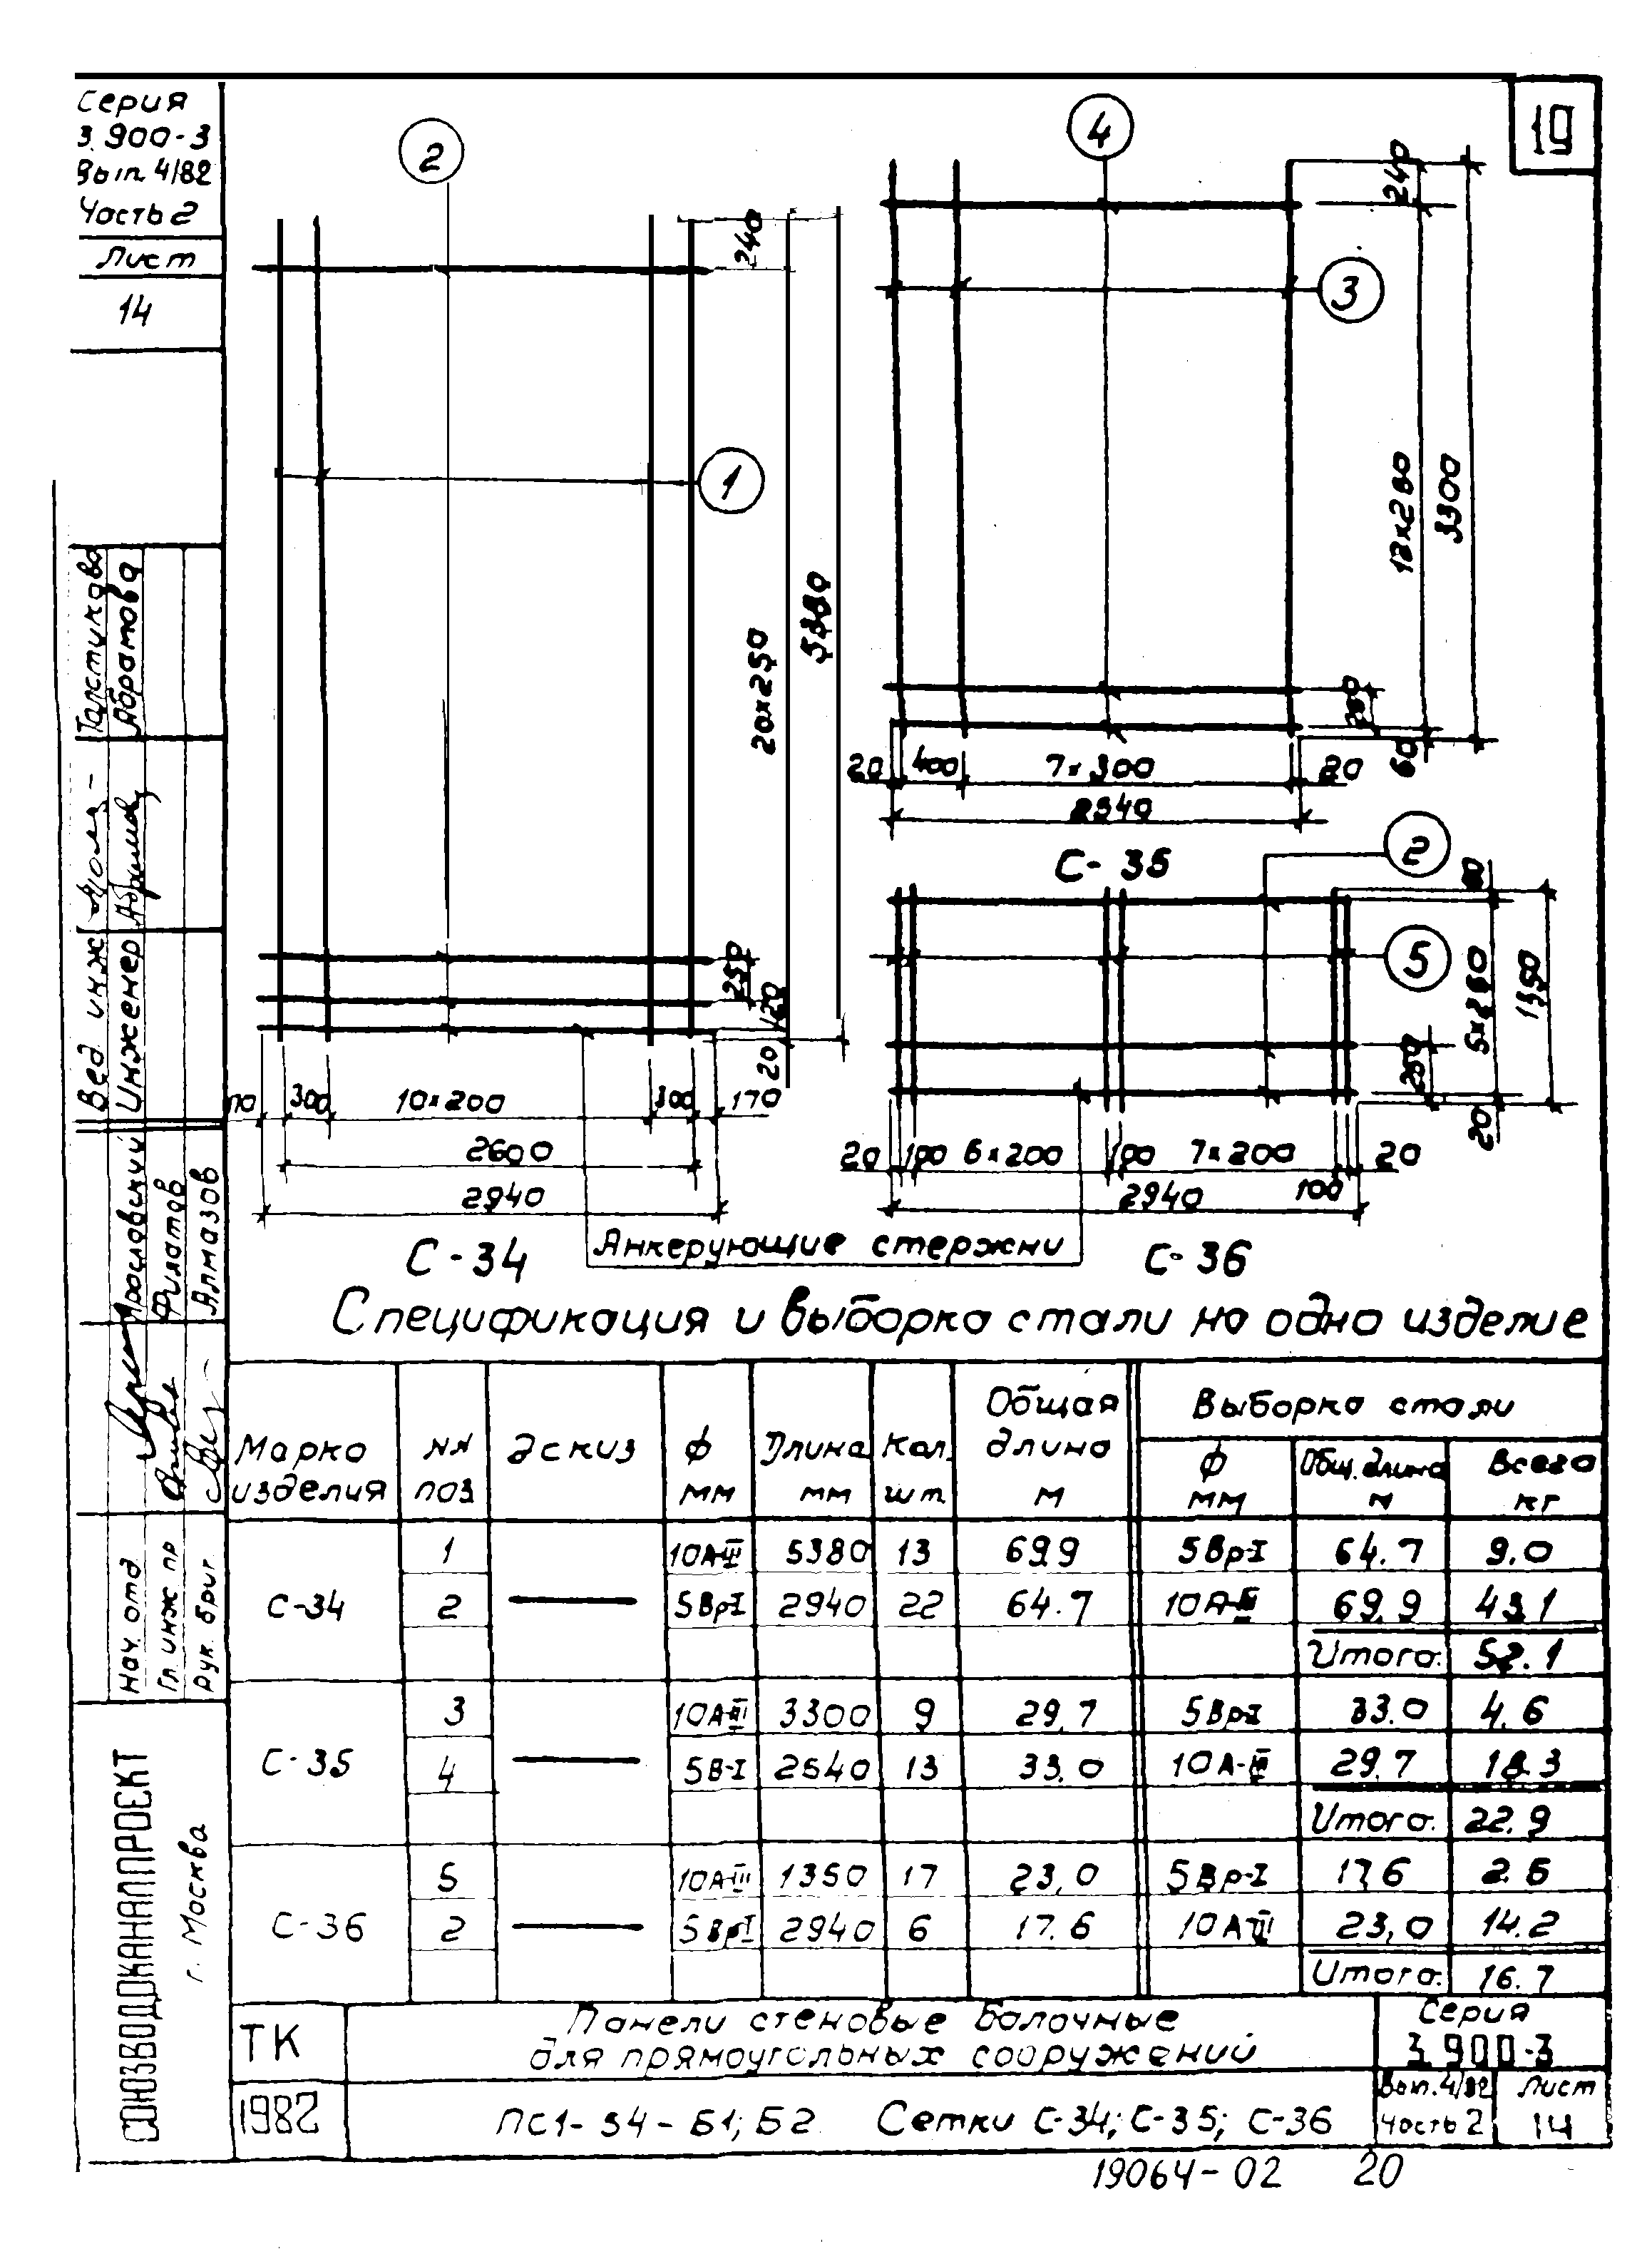 Серия
3.900-3
Вып. 4/82
Часть 2
Лист
14
19
2
240
20×250
5380
1
250
120
20
170
300
10×200
300
170
2600
2940
С-34
4
240
3
12×250
3300
60
20
400
7×300
20
2540
С-35
2
5
5×260
1350
20
20
100
6×200
100
7×200
100
20
2940
С-36
Анкерующие стержни
Спецификация и выборка стали на одно изделие
Марка изделия
NN поз
Эскиз
ф мм
Длина мм
Кол. шт.
Общая длина м
Выборка стали
ф мм
Общ. длина м
Всего кг
С-34
1
10А-III
5380
13
69.9
5Вр-I
64.7
9.0
2
5Вр-I
2940
22
64.7
10А-III
69.9
43.1
Итого:
52.1
С-35
3
10А-III
3300
9
29.7
5Вр-I
33.0
4.6
4
5В-I
2540
13
33.0
10А-III
29.7
18.3
Итого:
22.9
С-36
5
10А-III
1350
17
23,0
5Вр-I
17,6
2.5
2
5Вр-I
2940
6
17.6
10АIII
23,0
14.2
Итого:
16.7
ТК
1982
Панели стеновые балочные
для прямоугольных сооружений
ПС1-34-Б1; Б2. Сетки С-34; С-35; С-36
Серия
3.900-3
Вып. 4/82
Часть 2
Лист
14
19064-02 20
Вед. инж
Инженер
Абрамова
Ярославский
Филатов
Алмазов
Нач. отд
Гл. инж. пр
Рук. бриг
СОЮЗВОДОКАНАЛПРОЕКТ
г. Москва